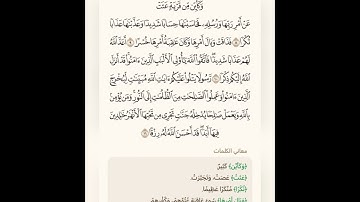 وَكَأَيِّن مِّن قَرْيَةٍ عَتَتْ
عَنْ أَمْرِ رَبِّهَا وَرُسُلِهِۦ فَحَاسَبْنَٰهَا حِسَابًا شَدِيدًا وَعَذَّبْنَٰهَا عَذَابًا
نُّكْرًا ۝ فَذَاقَتْ وَبَالَ أَمْرِهَا وَكَانَ عَٰقِبَةُ أَمْرِهَا خُسْرًا ۝ أَعَدَّ ٱللَّهُ
لَهُمْ عَذَابًا شَدِيدًا فَٱتَّقُوا۟ ٱللَّهَ يَٰٓأُو۟لِى ٱلْأَلْبَٰبِ ٱلَّذِينَ ءَامَنُوا۟ قَدْ أَنزَلَ
ٱللَّهُ إِلَيْكُمْ ذِكْرًا ۝ رَّسُولًا يَتْلُوا۟ عَلَيْكُمْ ءَايَٰتِ ٱللَّهِ مُبَيِّنَٰتٍ لِّيُخْرِجَ
ٱلَّذِينَ ءَامَنُوا۟ وَعَمِلُوا۟ ٱلصَّٰلِحَٰتِ مِنَ ٱلظُّلُمَٰتِ إِلَى ٱلنُّورِ وَمَن يُؤْمِنۢ
بِٱللَّهِ وَيَعْمَلْ صَٰلِحًا يُدْخِلْهُ جَنَّٰتٍ تَجْرِى مِن تَحْتِهَا ٱلْأَنْهَٰرُ خَٰلِدِينَ
فِيهَآ أَبَدًا قَدْ أَحْسَنَ ٱللَّهُ لَهُۥ رِزْقًا ۝
معاني الكلمات
﴿وَكَأَيِّن﴾ كَثِيرٌ.
﴿عَتَتْ﴾ عَصَتْ، وَتَجَبَّرَتْ.
﴿نُكْرًا﴾ مُنْكَرًا عَظِيمًا.
﴿وَبَالَ أَمْرِهَا﴾ سُوءَ عَاقِبَةِ عُتُوِّهِمْ، وَكُفْرِهِمْ.